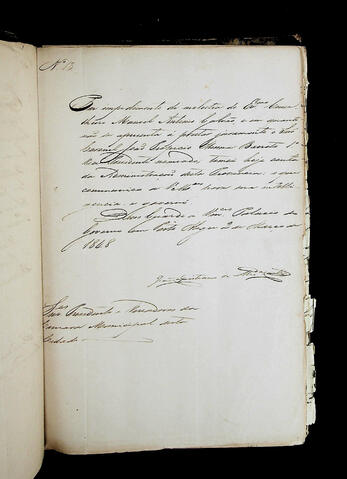 Nº 13
Por impedimento de molestia do Exmo Conse
lheiro Manoel Antonio Galvão e em quanto
não se apresenta a prestar juramento o Exmo
João Menna Barreto 1º
Vice Presidente nomeado, tomei hoje conta
da Administração desta Provincia, o que
communico a VMces para sua intelli
gencia e governo.
Deos Guarde a Vmces Palacio do
Governo em Porto Alegre 2 de de
1848

Snres Presidente e Vereadores da
Camara Municipal desta
Cidade